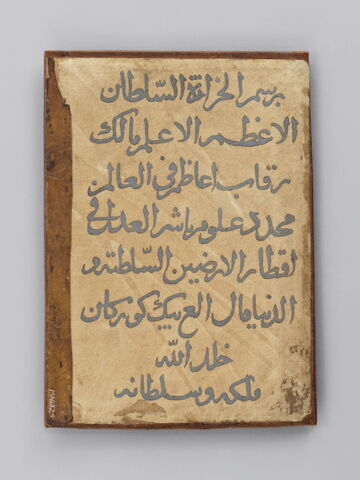 برسم الخزانة السّلطان
الاعظم الاعلم مالك
رقاب اعاظم في العالم
مجدد علوم ناشر العدل في
اقطار الارضين السّلطنة و
الدنيا مال
خلد الله
ملكه وسلطانه